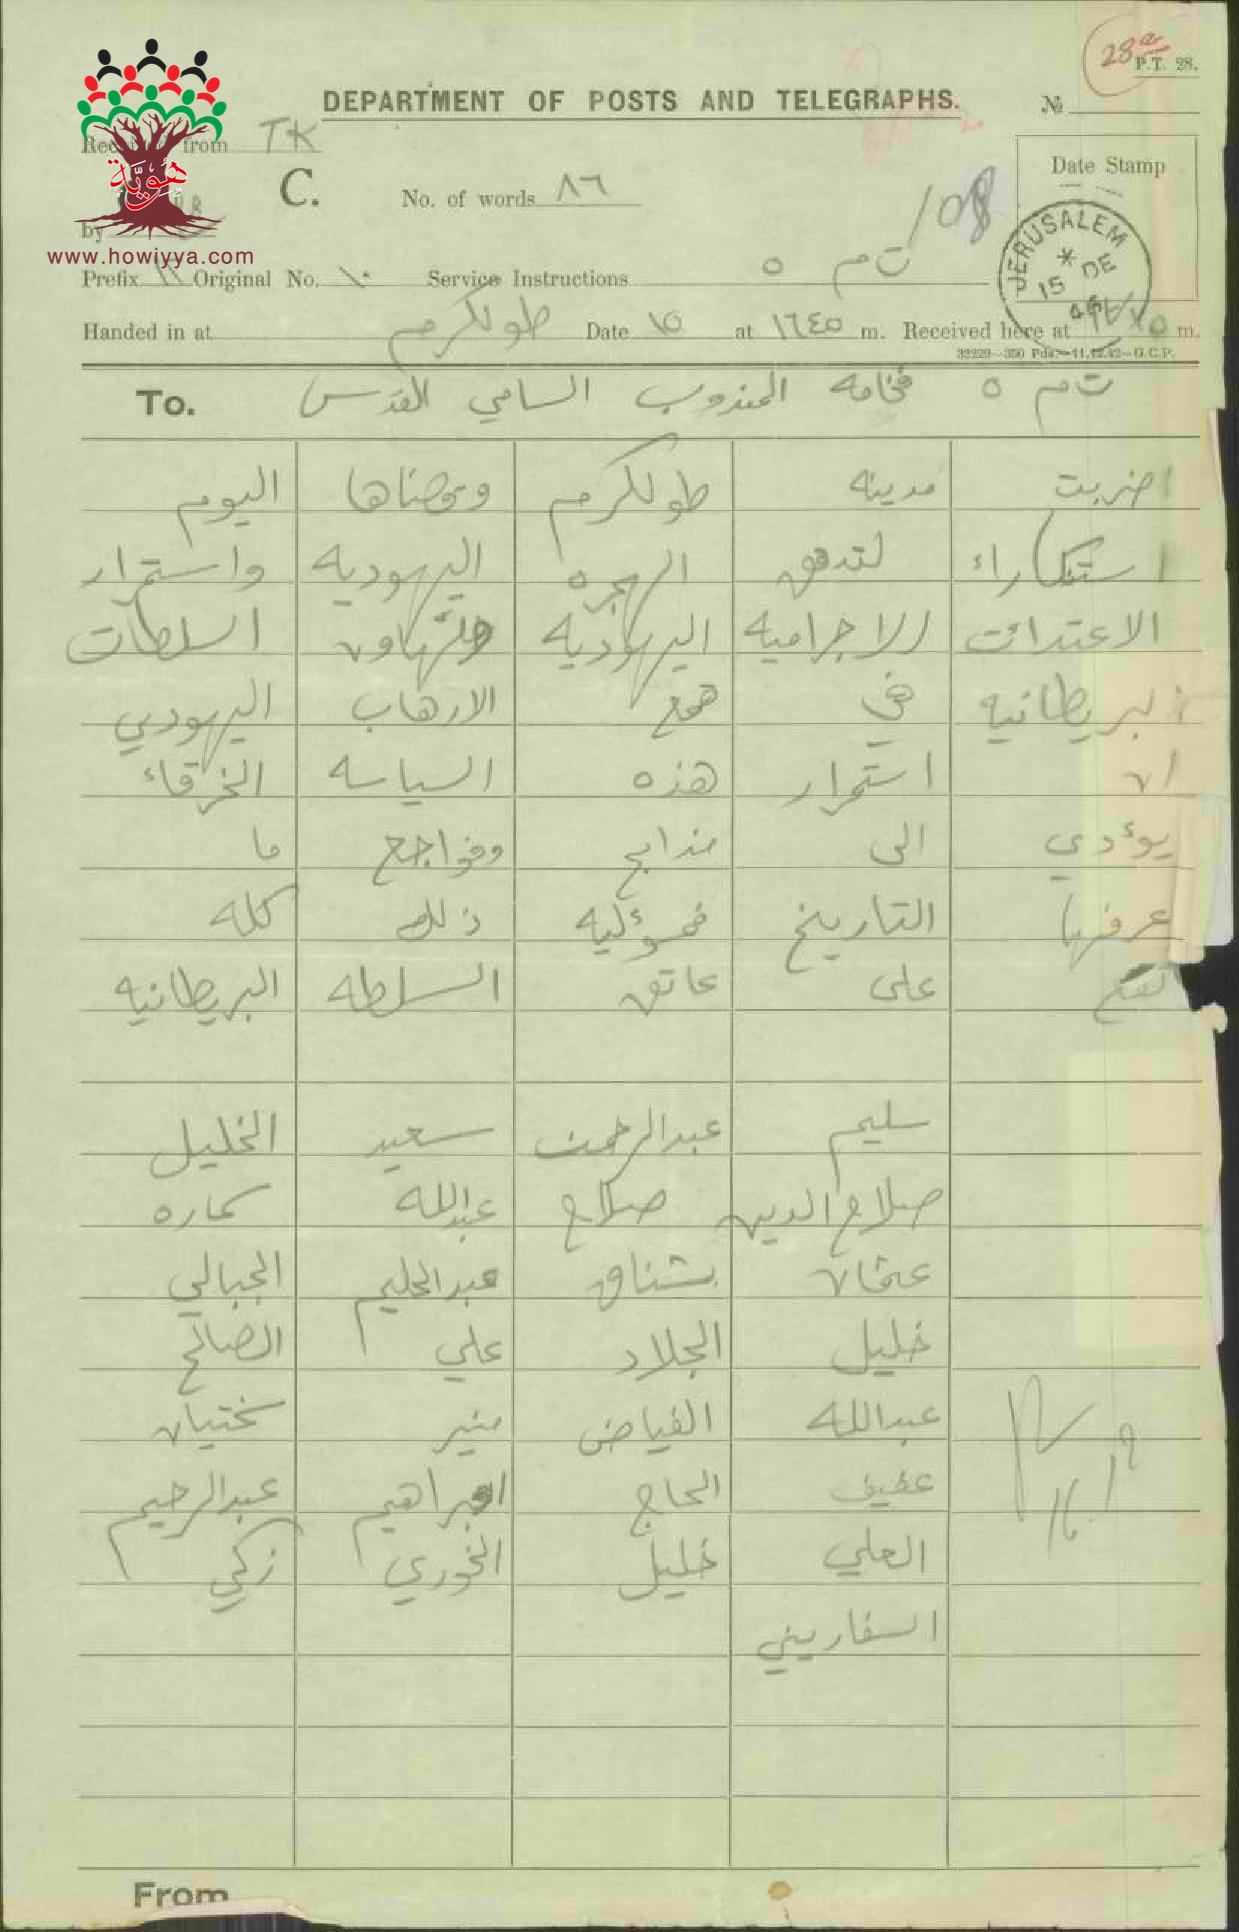 28a
P.T. 28.
DEPARTMENT OF POSTS AND TELEGRAPHS.
№
Received from TK
Date Stamp
هُوِيَّة
C.
No. of words ٨٦
108
by
www.howiyya.com
JERUSALEM
15 DE
46
Prefix Original No. ١٠ Service Instructions ت م ٥
Handed in at طولكرم Date ١٥ at ١٦٤٥ m. Received here at m.
32229—350 Pds.—11.12.42—G.C.P.
To. ت م ٥ فخامه المندوب السامي القدس
اضربت مدينه طولكرم وقضناها اليوم
استنكاراء لتدفق الهجره اليهوديه واستمرار
الاعتدائت الاجراميه اليهوديه وتهاون السلطات
البريطانيه في قمع الارهاب اليهودي
ان استمرار هذه السياسه الخرقاء
يوءدي الى مذابح وفواجع ما
عرفها التاريخ فمسوءليه ذلك كله
تقع على عاتق السلطه البريطانيه
سليم عبدالرحمن سعيد الخليل
صلاح الدين صلاح عبدالله كماره
عثمان بشناق عبدالحليم الجبالي
خليل الجلاد علي الصالح
عبدالله الفياض منير سختيان
عفيف الحاج ابراهيم عبدالرحيم
العلي خليل الخوري زكي
السفاريني
From